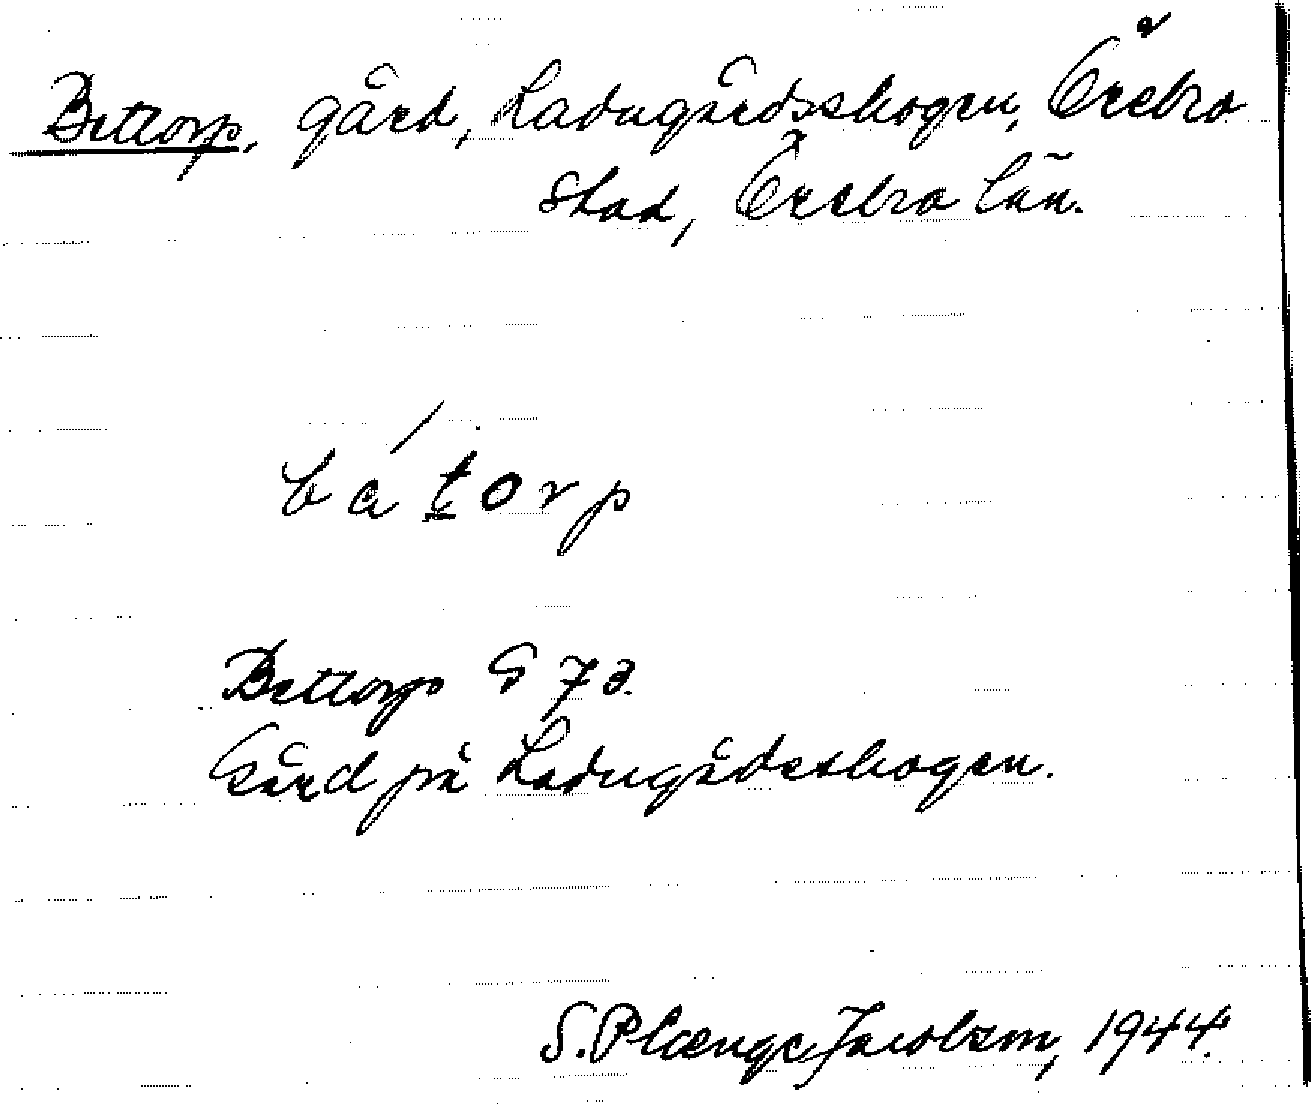 Bettorp, gård, Ladugårdsskogen, Örebro
stad, Örebro län.
bátorp
Bettorp G 73.
Gård på Ladugådsskogen.
S. Plænge Jacobson, 1944.